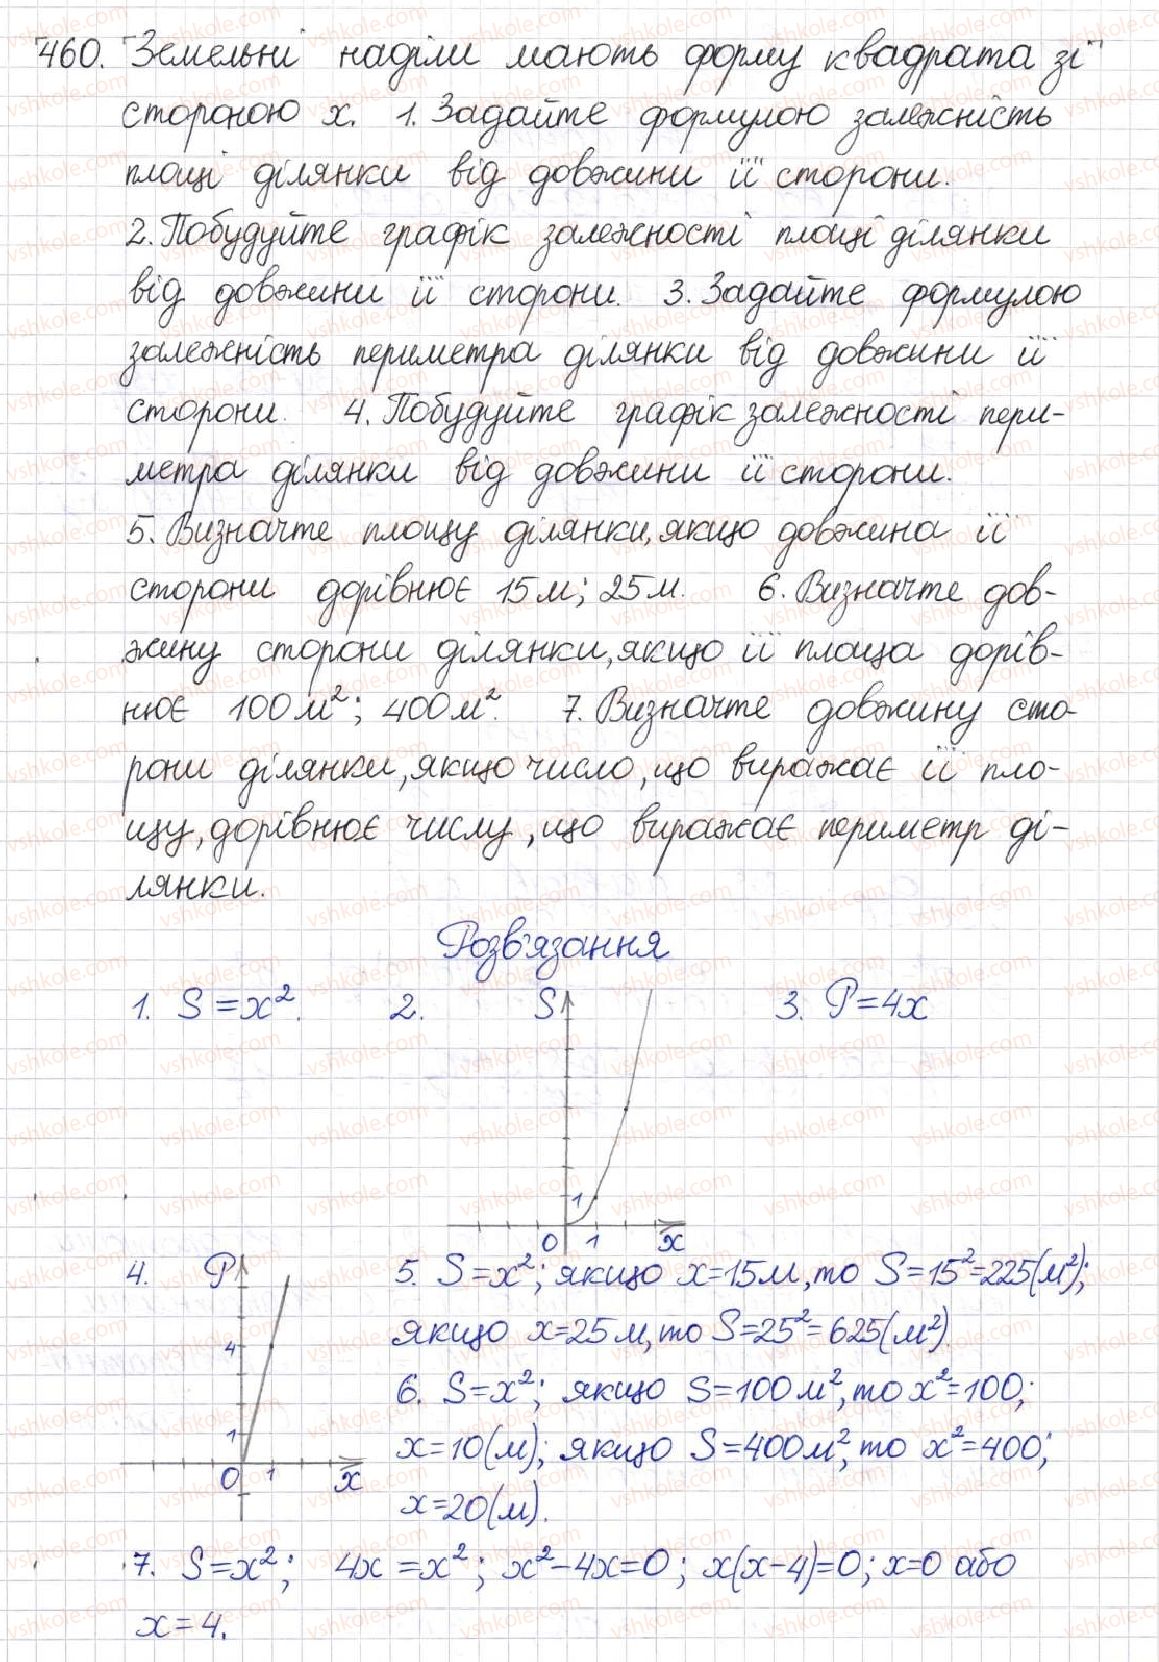 460. Земельні наділи мають форму квадрата зі
стороною x. 1. Задайте формулою залежність
площі ділянки від довжини її сторони.
2. Побудуйте графік залежності площі ділянки
від довжини її сторони. 3. Задайте формулою
залежність периметра ділянки від довжини її
сторони. 4. Побудуйте графік залежності пери-
метра ділянки від довжини її сторони.
5. Визначте площу ділянки, якщо довжина її
сторони дорівнює 15 м; 25 м. 6. Визначте дов-
жину сторони ділянки, якщо її площа дорів-
нює 100 м²; 400 м². 7. Визначте довжину сто-
рони ділянки, якщо число, що виражає її пло-
щу, дорівнює числу, що виражає периметр ді-
лянки.
Розв'язання
1. S = x². 2. S 3. P = 4x
1
0 1 x
4. P 5. S = x²; якщо x = 15 м, то S = 15² = 225 (м²);
якщо x = 25 м, то S = 25² = 625 (м²)
4 6. S = x²; якщо S = 100 м², то x² = 100;
1 x = 10 (м); якщо S = 400 м², то x² = 400;
0 1 x x = 20 (м).
7. S = x²; 4x = x²; x² - 4x = 0; x(x - 4) = 0; x = 0 або
x = 4.